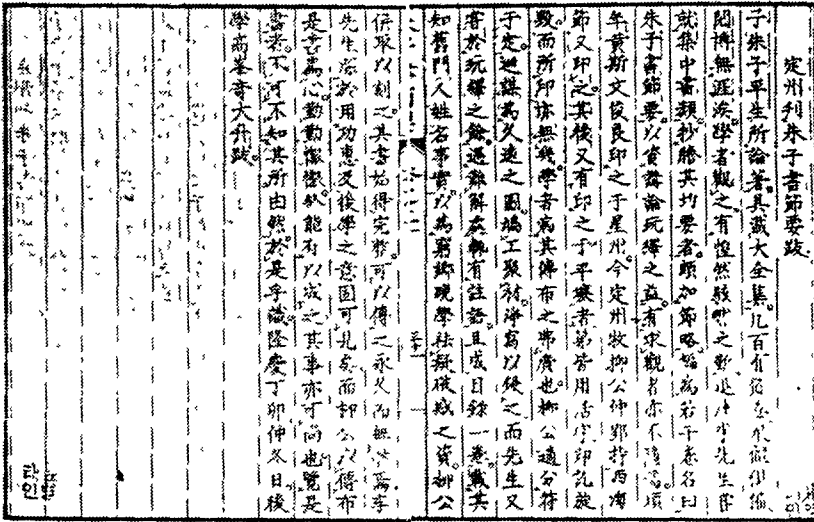 定州刊朱子書節要跋
子朱子平生所論著具載大全集凡百有
閎博無涯涘學者觀之有惶然駭之李先生嘗
就集中書類抄謄其切要者頗加節略編為若干卷名曰
朱子書節要以資講論玩繹之益有求觀者亦不隱焉頃
年黃斯文俊良印之于星州今定州牧柳公仲郢按西海
節又印之其後又有印之于平壤者第皆用活字印訖旋
毀而所印亦無幾學者病其傳布之弗廣也柳公適分符
于定迺謀為久遠之圖鳩工聚材淨寫以鋟之而先生又
嘗於玩繹之餘遇難解處輒有註語且成目錄一卷載其
知舊門人姓名事實以為窮鄉晩學祛疑破惑之資柳公
併取以刻之其書始得完整可以傳之永久而無弊焉李
先生深於用功惠及後學之意固可見矣而柳公以傳布
是書為心勤勤懇懇終能有以成之其事亦可尚也覽是
書者不可不知其所由然於是乎識隆慶丁卯仲冬日後
學高峯奇大升跋